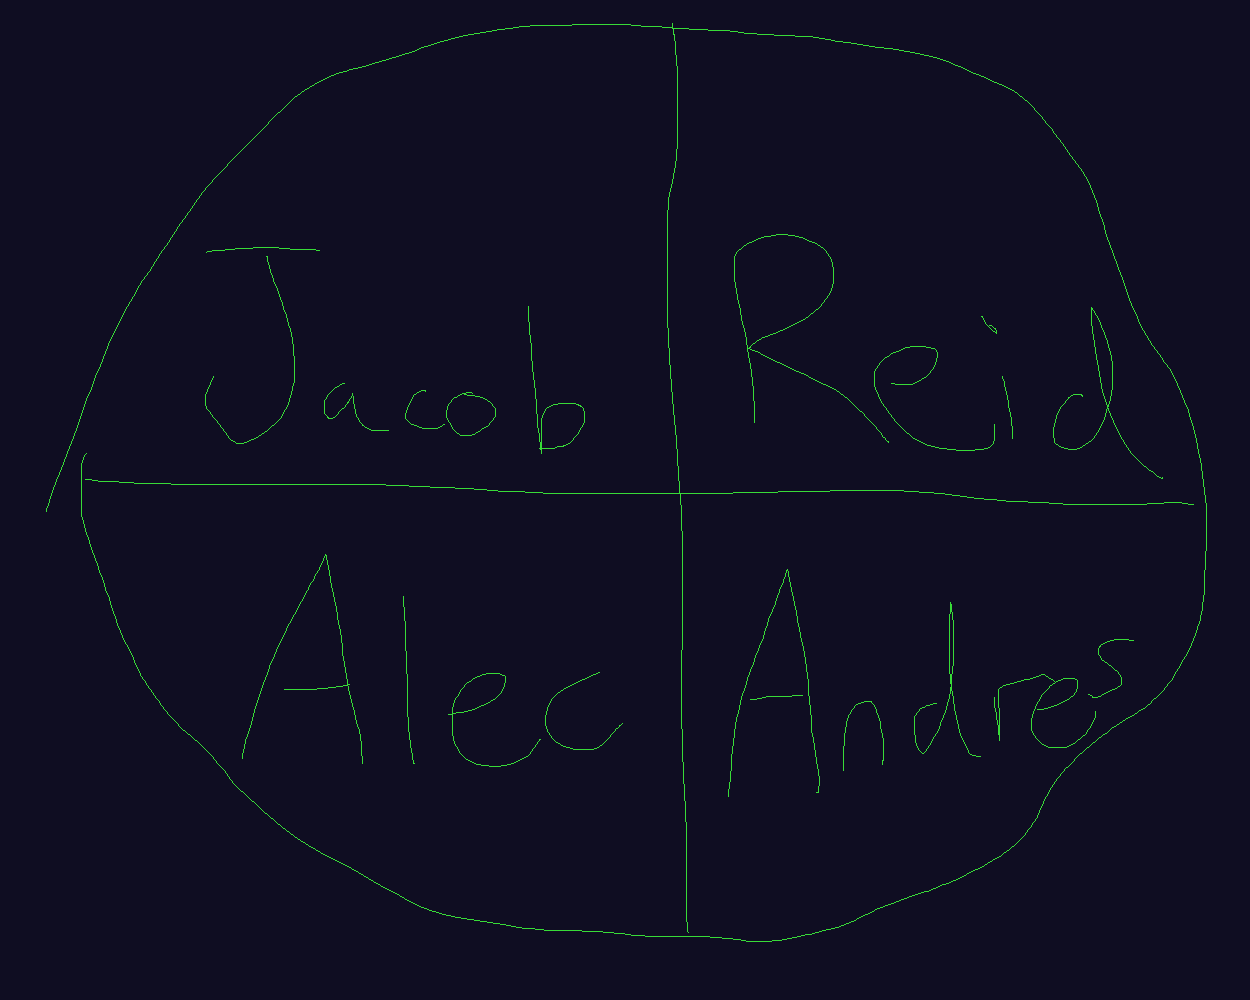 Jacob
Reid
Alec
Andres